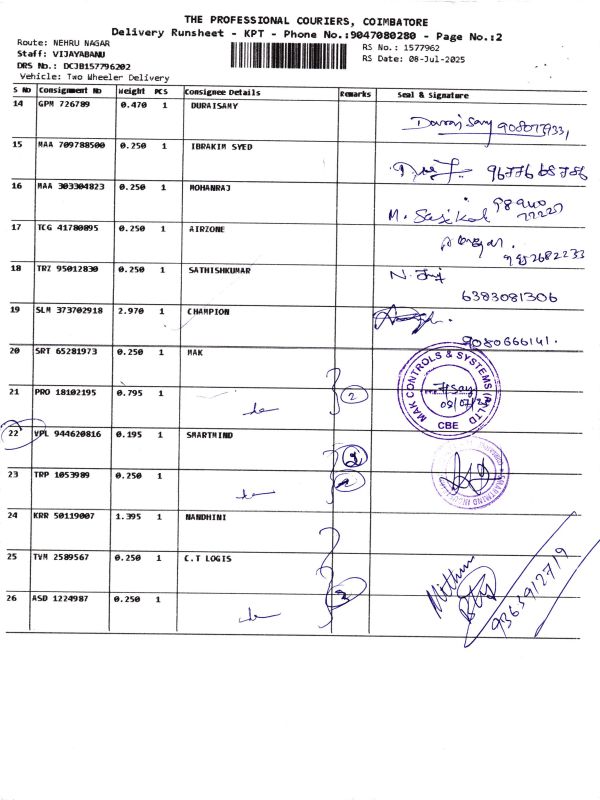 THE PROFESSIONAL COURIERS, COIMBATORE
Delivery Runsheet - KPT - Phone No.:9047080280 - Page No.:2
Route: NEHRU NAGAR
RS No.: 1577962
Staff: VIJAYABANU
RS Date: 08-Jul-2025
DRS No.: DCJB157796202
Vehicle: Two Wheeler Delivery
S No Consignment No Weight PCS Consignee Details Remarks Seal & Signature
14 GPM 726789 0.470 1 DURAISAMY
15 MAA 709788500 0.250 1 IBRAKIM SYED
16 MAA 303304823 0.250 1 MOHANRAJ
M. Sasikal
17 TCG 41780895 0.250 1 AIRZONE
18 TRZ 95012830 0.250 1 SATHISHKUMAR
6383081306
19 SLM 373702918 2.970 1 CHAMPION
9080666141.
20 SRT 65281973 0.250 1 MAK
MAK CONTROLS & SYSTEMS (P) LTD
CBE
21 PRO 18102195 0.795 1
2
22 VPL 944620816 0.195 1 SMARTMIND
23 TRP 1053989 0.250 1
24 KRR 50119007 1.395 1 NANDHINI
25 TVM 2589567 0.250 1 C.T LOGIS
26 ASD 1224987 0.250 1
Mithun
9363912719